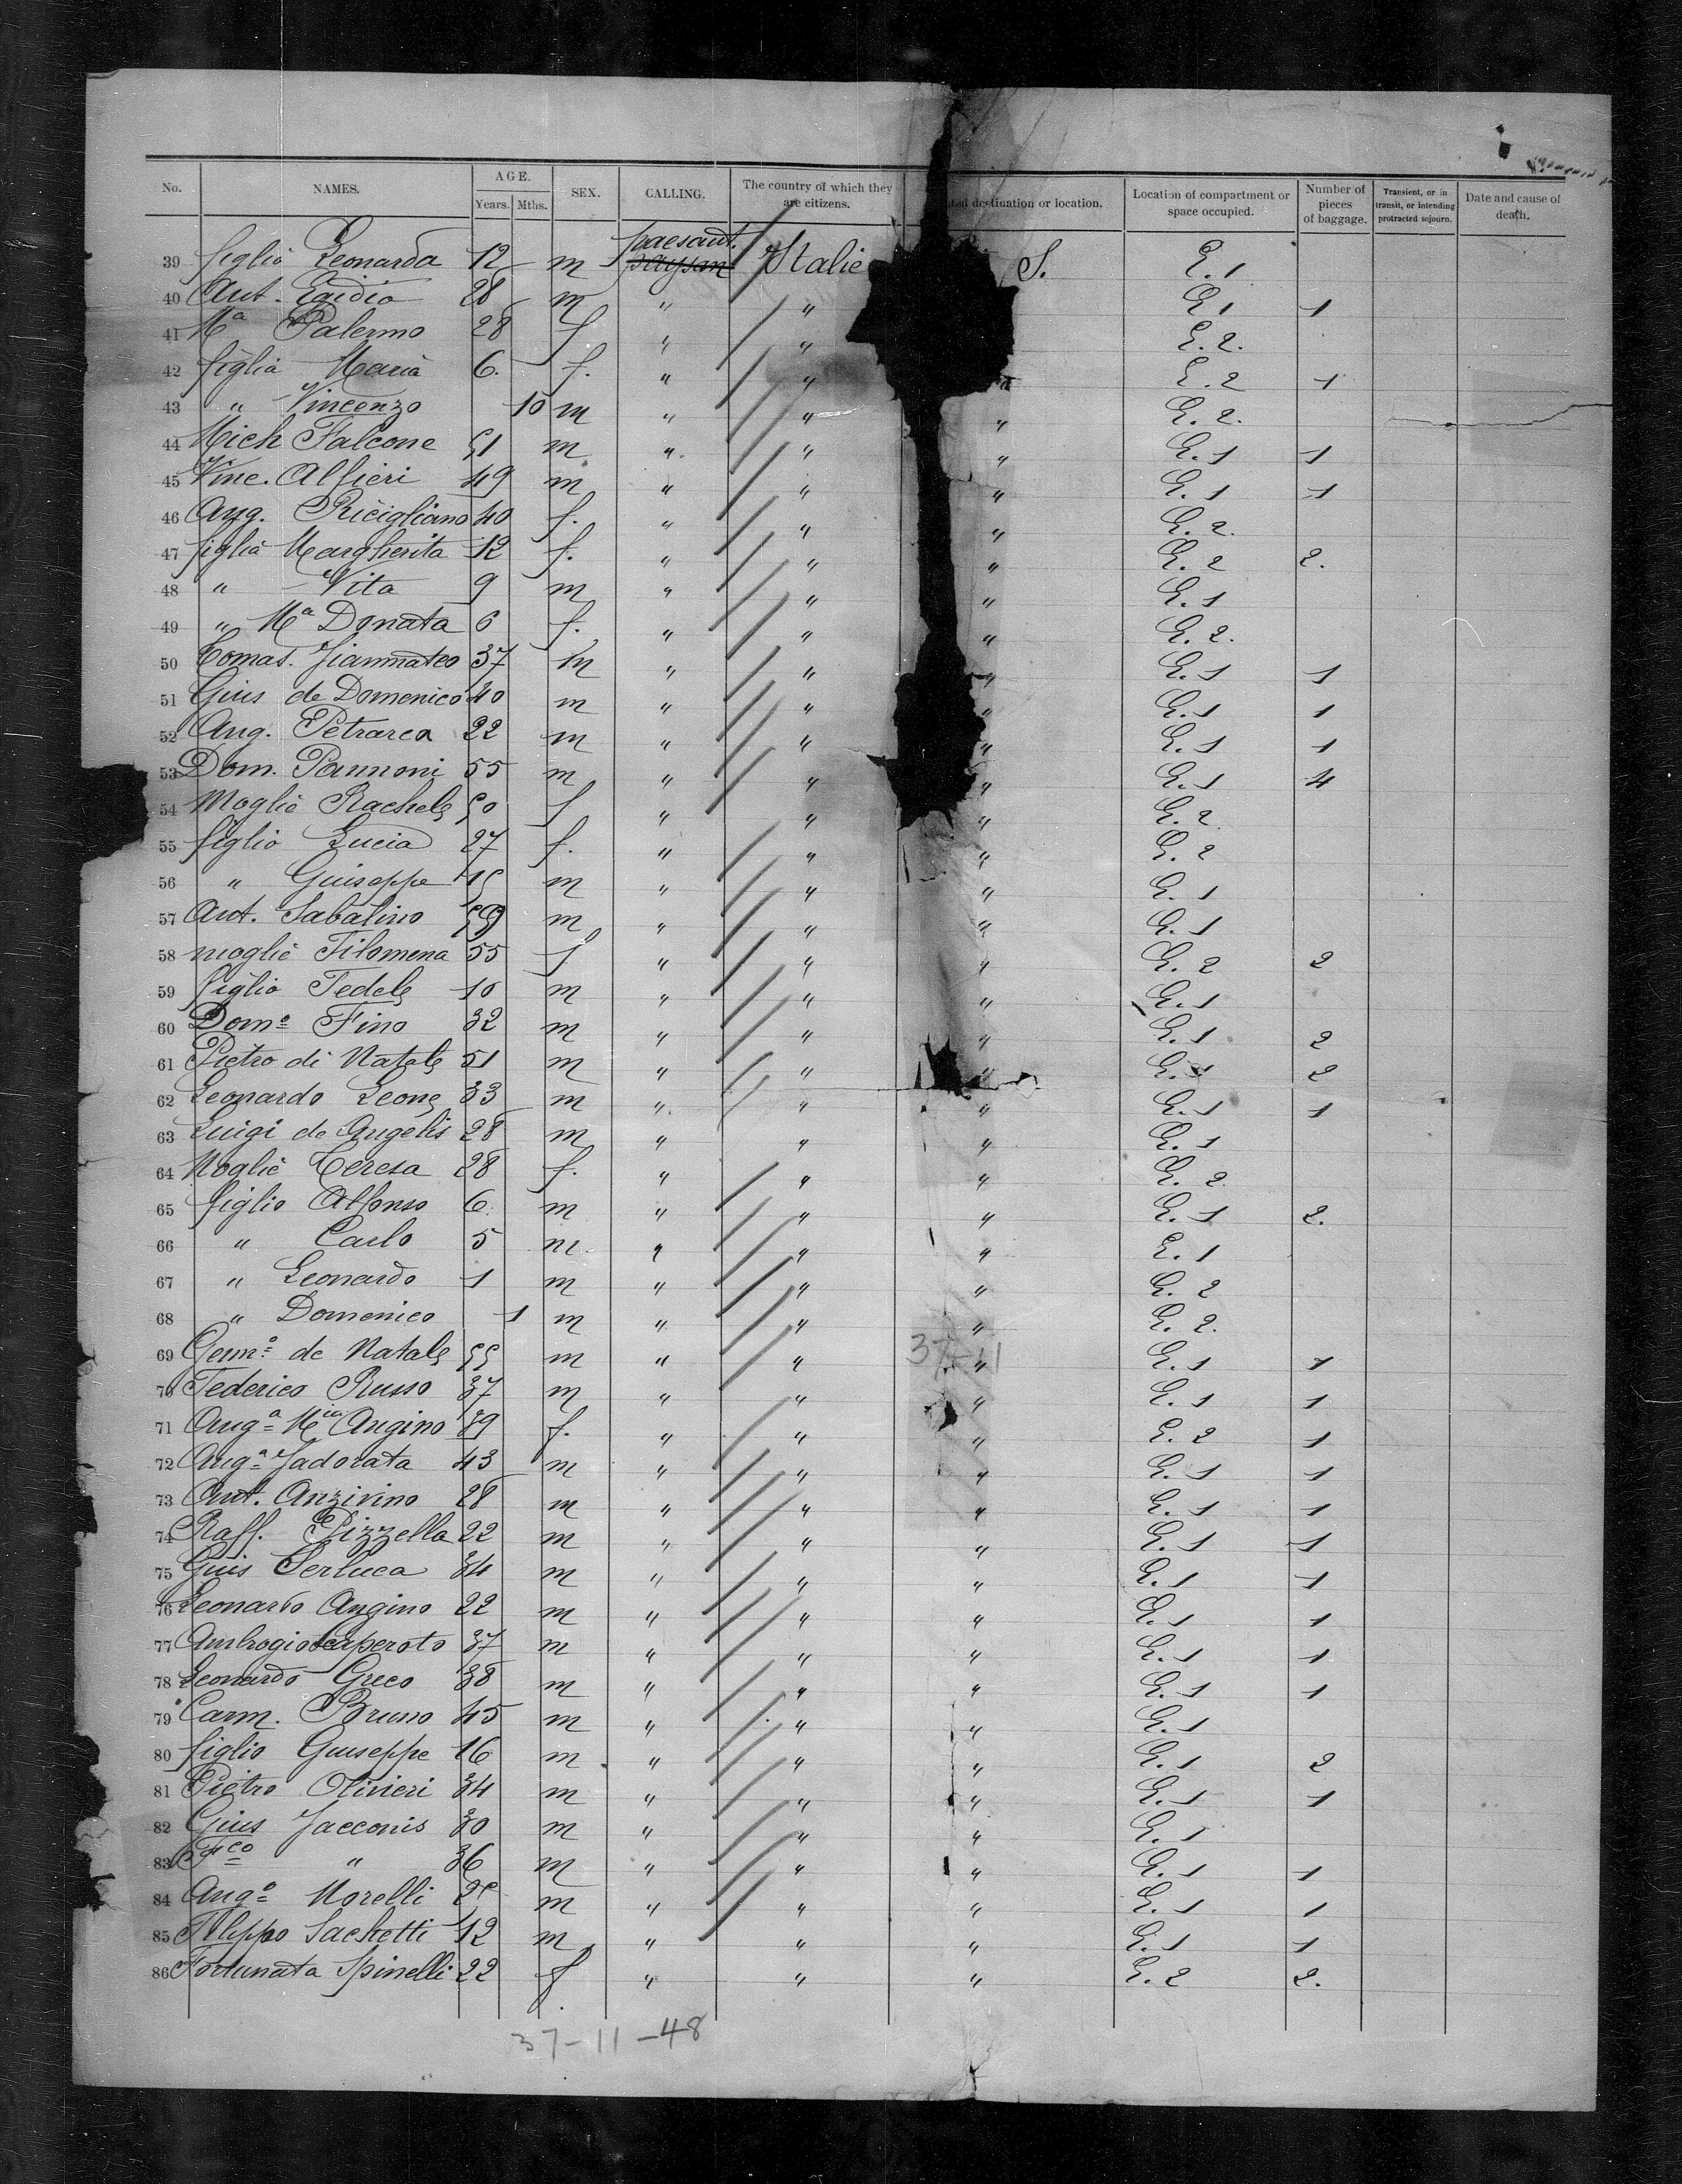 No. NAMES. AGE. Years. Mths. SEX. CALLING. The country of which they are citizens. destination or location. Location of compartment or space occupied. Number of pieces of baggage. Transient, or in transit, or intending protracted sojourn. Date and cause of death.
39 figlio Leonarda 12 m paesant. paysan Italie S. E. 1
40 Ant. Egidio 28 m " " E. 1 1
41 Ma Palermo 28 f " " E. 2.
42 figlia Maria 6. f. " " E. 2 1
43 " Vincenzo 10 m " " " E. 2.
44 Mich Falcone 51 m " " " E. 1 1
45 Vinc. Alfieri 49 m " " " E. 1 1
46 Ang. Ricigliano 40 f. " " " E. 2.
47 figlia Margherita 12 f. " " " E. 2 2.
48 " Vita 9 m " " " E. 1
49 " Ma Donata 6 f. " " " E. 2.
50 Tomas. Giammateo 37 m " " " E. 1 1
51 Gius de Domenico 40 m " " " E. 1 1
52 Ang. Petrarca 22 m " " " E. 1 1
53 Dom. Pannoni 55 m " " " E. 1 4
54 Moglie Rachele 50 f " " " E. 2.
55 figlio Lucia 27 f. " " " E. 2
56 " Giuseppe 15 m " " " E. 1
57 Ant. Sabatino 59 m " " " E. 1
58 moglie Filomena 55 f " " " E. 2 2
59 figlio Fedele 10 m " " " E. 1
60 Domo Fino 32 m " " " E. 1 2
61 Pietro di Natale 51 m " " " E. 1 2
62 Leonardo Leone 33 m " " " E. 1 1
63 Luigi de Angelis 28 m " " " E. 1
64 Moglie Teresa 28 f. " " " E. 2.
65 figlio Alfonso 6. m " " " E. 1 2.
66 " Carlo 5 m. " " " E. 1
67 " Leonardo 1 m " " " E. 2
68 " Domenico 1 m " " " E. 2.
69 Genno de Natale 55 m " " 37-11 " E. 1 1
70 Federico Russo 37 m " " " E. 1 1
71 Anga Mia Angino 39 f. " " " E. 2 1
72 Ango Jadorata 43 m " " " E. 1 1
73 Ant. Anzivino 28 m " " " E. 1 1
74 Raff. Pizzella 22 m " " " E. 1 1
75 Gius Serluca 34 m " " " E. 1 1
76 Leonardo Angino 22 m " " " E. 1 1
77 Ambrogio 37 m " " " E. 1 1
78 Leonardo Greco 38 m " " " E. 1 1
79 Carm. Bruno 45 m " " " E. 1
80 figlio Giuseppe 16 m " " " E. 1 2
81 Pietro Olivieri 34 m " " " E. 1 1
82 Gius Jacconis 30 m " " " E. 1
83 Fco " 36 m " " " E. 1 1
84 Ango Morelli 25 m " " " E. 1 1
85 Filippo Sachetti 12 m " " " E. 1 1
86 Fortunata Spinelli 22 f " " " E. 2 2.
37-11-48